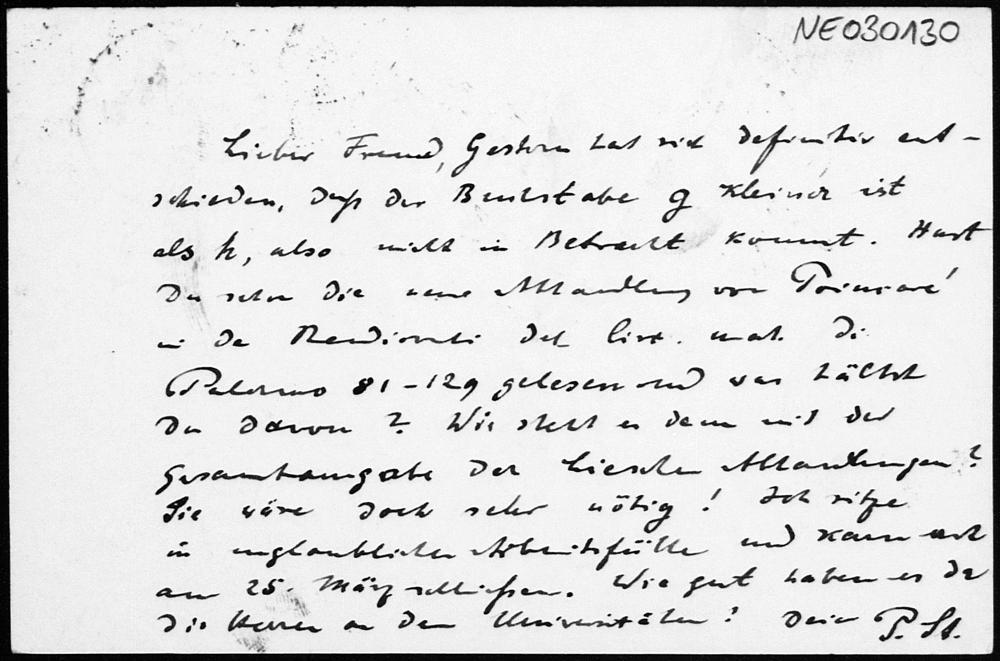 NE030130
Lieber Freund, Gestern hat sich definitiv ent-
schieden, daß der Buchstabe g kleiner ist
als h, also nicht in Betracht kommt. Hast
Du schon die neue Abhandlung von Poincaré
in den Rendiconti del Circ. mat. di
Palermo 81-129 gelesen und was hältst
Du davon? Wie steht es denn mit der
Gesamtausgabe der Lieschen Abhandlungen?
Sie wäre doch sehr nötig! Ich sitze
in unglaublicher Arbeitsfülle und kann erst
am 25. März schließen. Wie gut haben es da
die Herren an den Universitäten! Dein P. St.